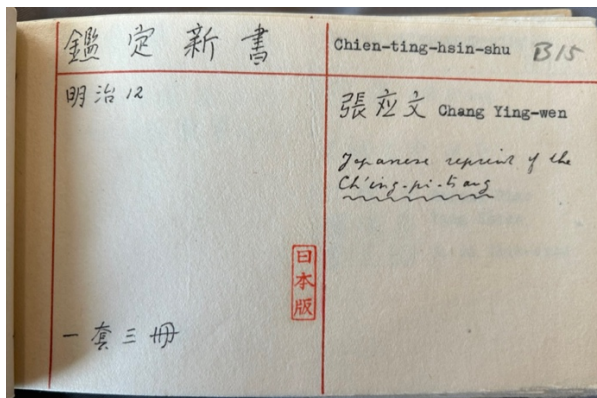 鑑定新書
Chien-ting-hsin-shu B15
明治12
張应文 Chang Ying-wen
Japanese reprint of the
Ch'ing-pi-tsang
日本版
一套三冊